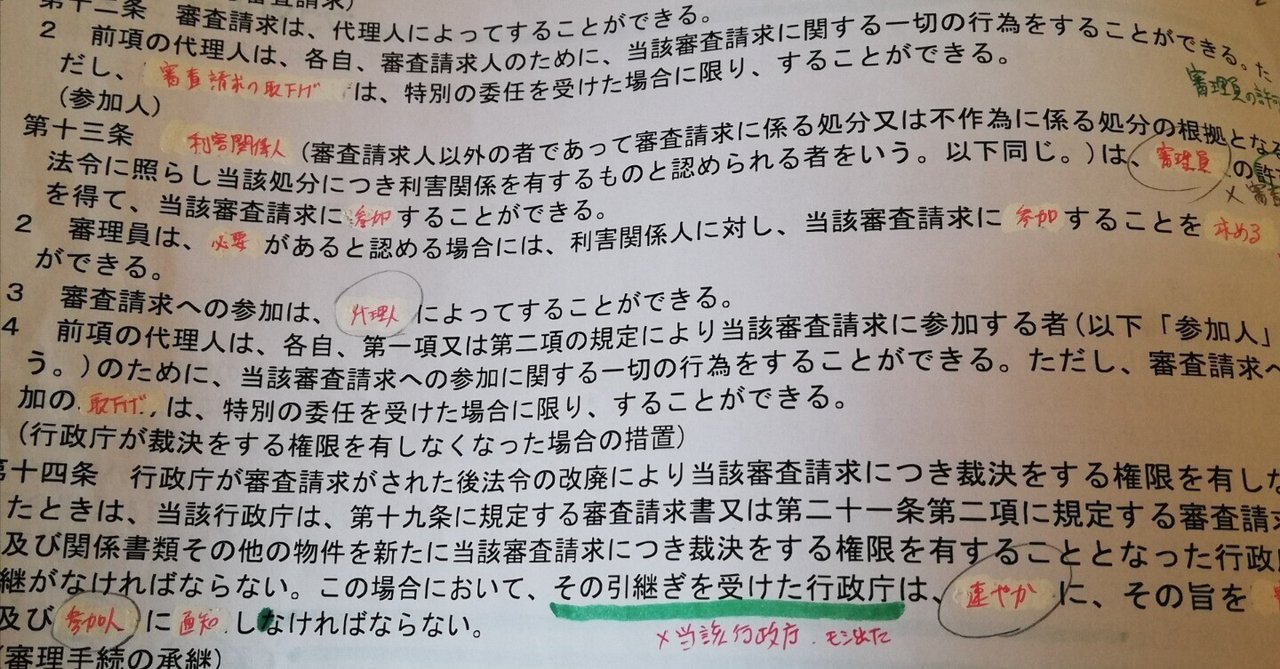 第十二条　審査請求は、代理人によってすることができる。
２　前項の代理人は、各自、審査請求人のために、当該審査請求に関する一切の行為をすることができる。た
だし、審査請求の取下げは、特別の委任を受けた場合に限り、することができる。
審理員の許可
(参加人)
第十三条　利害関係人(審査請求人以外の者であって審査請求に係る処分又は不作為に係る処分の根拠となる
法令に照らし当該処分につき利害関係を有するものと認められる者をいう。以下同じ。)は、審理員の許
×審
を得て、当該審査請求に参加することができる。
２　審理員は、必要があると認める場合には、利害関係人に対し、当該審査請求に参加することを求める
ができる。
３　審査請求への参加は、代理人によってすることができる。
４　前項の代理人は、各自、第一項又は第二項の規定により当該審査請求に参加する者(以下「参加人」
う。)のために、当該審査請求への参加に関する一切の行為をすることができる。ただし、審査請求へ
加の取下げは、特別の委任を受けた場合に限り、することができる。
(行政庁が裁決をする権限を有しなくなった場合の措置)
第十四条　行政庁が審査請求がされた後法令の改廃により当該審査請求につき裁決をする権限を有しな
たときは、当該行政庁は、第十九条に規定する審査請求書又は第二十一条第二項に規定する審査請求
及び関係書類その他の物件を新たに当該審査請求につき裁決をする権限を有することとなった行政庁
継がなければならない。この場合において、その引継ぎを受けた行政庁は、速やかに、その旨を
及び参加人に通知しなければならない。
×当該行政庁
(審理手続の承継)